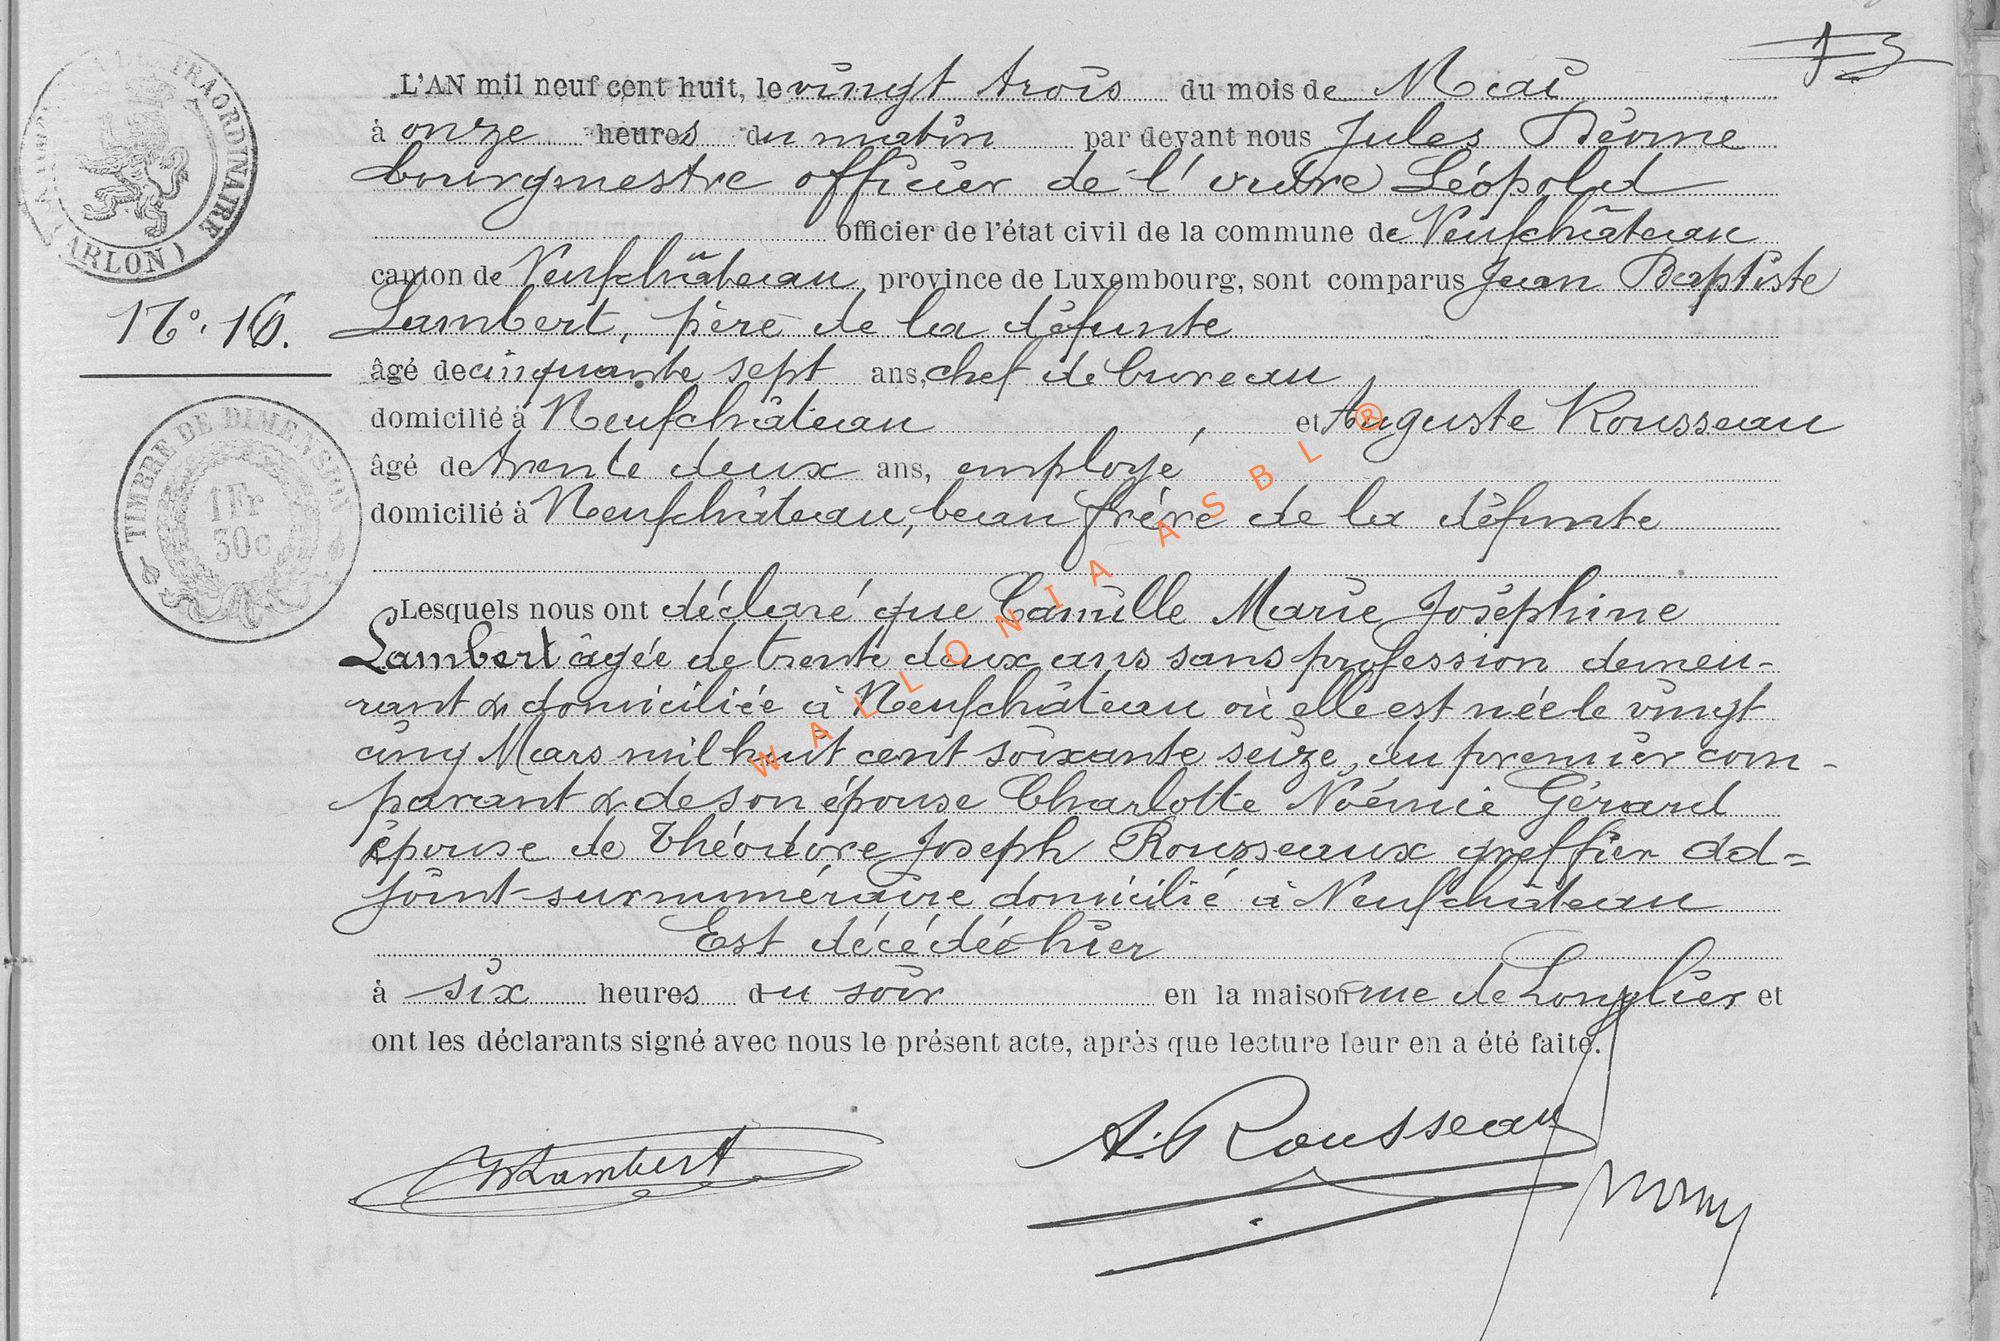 TIMBRE EXTRAORDINAIRE
(ARLON)
L'AN mil neuf cent huit, le vingt trois du mois de Mai
à onze heures du matin par devant nous Jules
bourgmestre officier de l'ordre Léopold
officier de l'état civil de la commune de Neufchâteau
canton de Neufchâteau, province de Luxembourg, sont comparus Jean Baptiste
N°. 16. Lambert, père de la défunte
âgé de cinquante sept ans, chef de bureau
domicilié à Neufchâteau, et Auguste Rousseau
âgé de trente deux ans, employé
domicilié à Neufchâteau, beau frère de la défunte
TIMBRE DE DIMENSION
1 Fr
30c
Lesquels nous ont déclaré que Camille Marie Joséphine
Lambert âgée de trente deux ans sans profession demeu-
rant & domiciliée à Neufchâteau où elle est née le vingt
cinq Mars mil huit cent soixante seize, du premier com-
parant & de son épouse Charlotte Noémie Gérard
épouse de Théodore Joseph Rousseaux greffier ad=
joint-surnuméraire domicilié à Neufchâteau
Est décédée hier
à six heures du soir en la maison rue de Longlier et
ont les déclarants signé avec nous le présent acte, après que lecture leur en a été faite.
JBLambert
A. Rousseau
WALLONIA ASBL ®